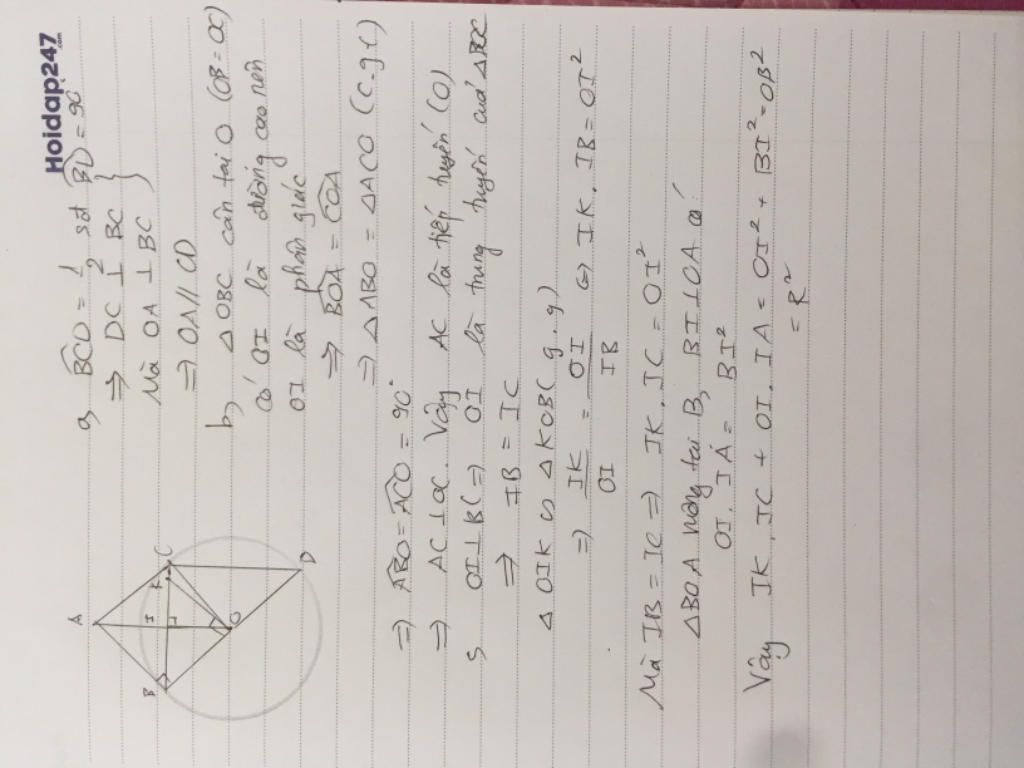 Hoidap247.com
a, BCD = 1/2 sđ BD = 90°
=> DC ⊥ BC }
Mà OA ⊥ BC }
=> OA // CD
b, △ OBC cân tại O (OB = OC)
có OI là đường cao nên
OI là phân giác
=> BOA = COA
=> △ ABO = △ ACO (c-g-c)
=> ABO = ACO = 90°
=> AC ⊥ OC. Vậy AC là tiếp tuyến (O)
OI ⊥ BC => OI là trung tuyến của
=> IB = IC
△ OIK ∽ △ KOB (g.g)
=> IK/OI = OI/IB <=> IK. IB = OI²
Mà IB = IC => IK. IC = OI²
△ BOA vuông tại B, BI ⊥ OA có:
OI. IA = BI²
Vậy IK. IC + OI. IA = OI² + BI² = OB²
= R²
A
B
I
K
C
O
D